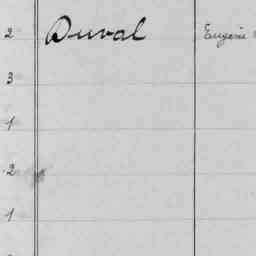 2 Duval Eugène
3
1
2
1